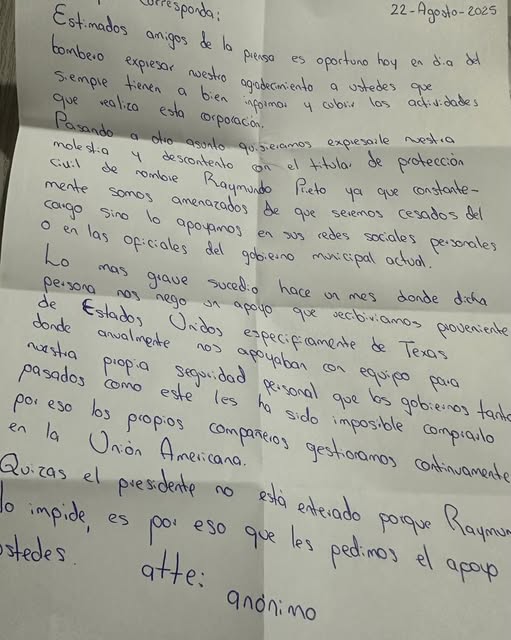 corresponda:
22-Agosto-2025
Estimados amigos de la prensa es oportuno hoy en dia del
bombero expresar nuestro agradecimiento a ustedes que
siempre tienen a bien informar y cubrir las actividades
que realiza esta corporación.
Pasando a otro asunto quisieramos expresarle nuestra
molestia y descontento con el titular de protección
civil de nombre Raymundo Prieto ya que constante-
mente somos amenazados de que seremos cesados del
cargo sino lo apoyamos en sus redes sociales personales
o en las oficiales del gobierno municipal actual.
Lo mas grave sucedio hace un mes donde dicha
persona nos nego un apoyo que recibiriamos proveniente
de Estados Unidos especificamente de Texas
donde anualmente nos apoyaban con equipo para
nuestra propia seguridad personal que los gobiernos tanto
pasados como este les ha sido imposible comprarlo
por eso los propios compañeros gestionamos continuamente
en la Unión Americana.
Quizas el presidente no está enterado porque Raymun
lo impide, es por eso que les pedimos el apoyo
ustedes.
atte:
anónimo